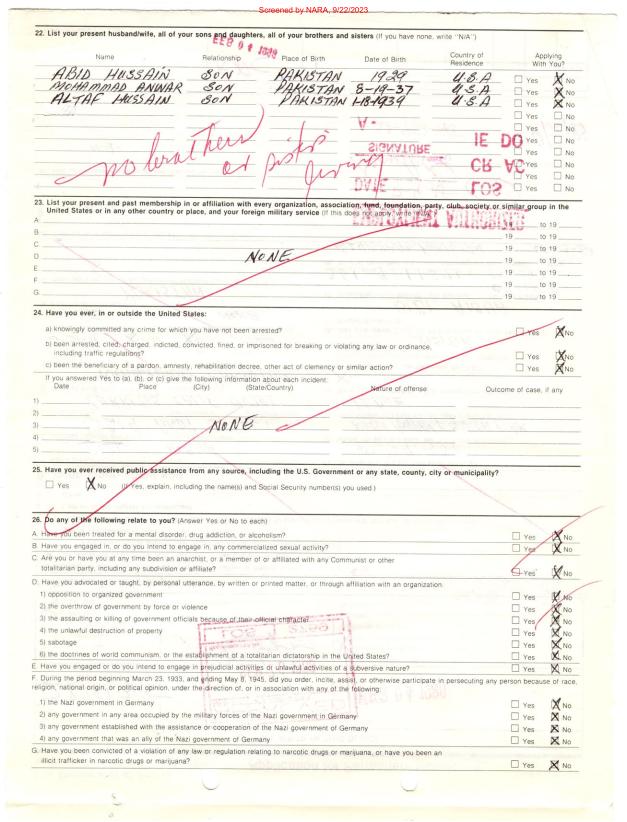 Screened by NARA, 9/22/2023
22. List your present husband/wife, all of your sons and daughters, all of your brothers and sisters (If you have none, write "N/A")
Name Relationship Place of Birth Date of Birth Country of Residence Applying With You?
ABID HUSSAIN SON PAKISTAN 1929 U.S.A ☐ Yes ☒ No
MOHAMMAD ANWAR SON PAKISTAN 8-19-37 U.S.A ☐ Yes ☒ No
ALTAF HUSSAIN SON PAKISTAN 1-8-1939 U.S.A ☐ Yes ☒ No
☐ Yes ☐ No
☐ Yes ☐ No
☐ Yes ☐ No
☐ Yes ☐ No
☐ Yes ☐ No
☐ Yes ☐ No
☐ Yes ☐ No
no brothers or sisters living
SIGNATURE
DATE
23. List your present and past membership in or affiliation with every organization, association, fund, foundation, party, club, society or similar group in the
United States or in any other country or place, and your foreign military service (If this does not apply, write "N/A")
A. 19 to 19
B. 19 to 19
C. 19 to 19
D. NONE 19 to 19
E. 19 to 19
F. 19 to 19
G. 19 to 19
24. Have you ever, in or outside the United States:
a) knowingly committed any crime for which you have not been arrested? ☐ Yes ☒ No
b) been arrested, cited, charged, indicted, convicted, fined, or imprisoned for breaking or violating any law or ordinance,
including traffic regulations? ☐ Yes ☒ No
c) been the beneficiary of a pardon, amnesty, rehabilitation decree, other act of clemency or similar action? ☐ Yes ☒ No
If you answered Yes to (a), (b), or (c) give the following information about each incident:
Date Place (City) (State/Country) Nature of offense Outcome of case, if any
1)
2)
3) NONE
4)
5)
25. Have you ever received public assistance from any source, including the U.S. Government or any state, county, city or municipality?
☐ Yes ☒ No (If Yes, explain, including the name(s) and Social Security number(s) you used.)
26. Do any of the following relate to you? (Answer Yes or No to each)
A. Have you been treated for a mental disorder, drug addiction, or alcoholism? ☐ Yes ☒ No
B. Have you engaged in, or do you intend to engage in, any commercialized sexual activity? ☐ Yes ☒ No
C. Are you or have you at any time been an anarchist, or a member of or affiliated with any Communist or other
totalitarian party, including any subdivision or affiliate? ☐ Yes ☒ No
D. Have you advocated or taught, by personal utterance, by written or printed matter, or through affiliation with an organization:
1) opposition to organized government ☐ Yes ☒ No
2) the overthrow of government by force or violence ☐ Yes ☒ No
3) the assaulting or killing of government officials because of their official character ☐ Yes ☒ No
4) the unlawful destruction of property ☐ Yes ☒ No
5) sabotage ☐ Yes ☒ No
6) the doctrines of world communism, or the establishment of a totalitarian dictatorship in the United States? ☐ Yes ☒ No
E. Have you engaged or do you intend to engage in prejudicial activities or unlawful activities of a subversive nature? ☐ Yes ☒ No
F. During the period beginning March 23, 1933, and ending May 8, 1945, did you order, incite, assist, or otherwise participate in persecuting any person because of race,
religion, national origin, or political opinion, under the direction of, or in association with any of the following:
1) the Nazi government in Germany ☐ Yes ☒ No
2) any government in any area occupied by the military forces of the Nazi government in Germany ☐ Yes ☒ No
3) any government established with the assistance or cooperation of the Nazi government of Germany ☐ Yes ☒ No
4) any government that was an ally of the Nazi government of Germany ☐ Yes ☒ No
G. Have you been convicted of a violation of any law or regulation relating to narcotic drugs or marijuana, or have you been an
illicit trafficker in narcotic drugs or marijuana? ☐ Yes ☒ No